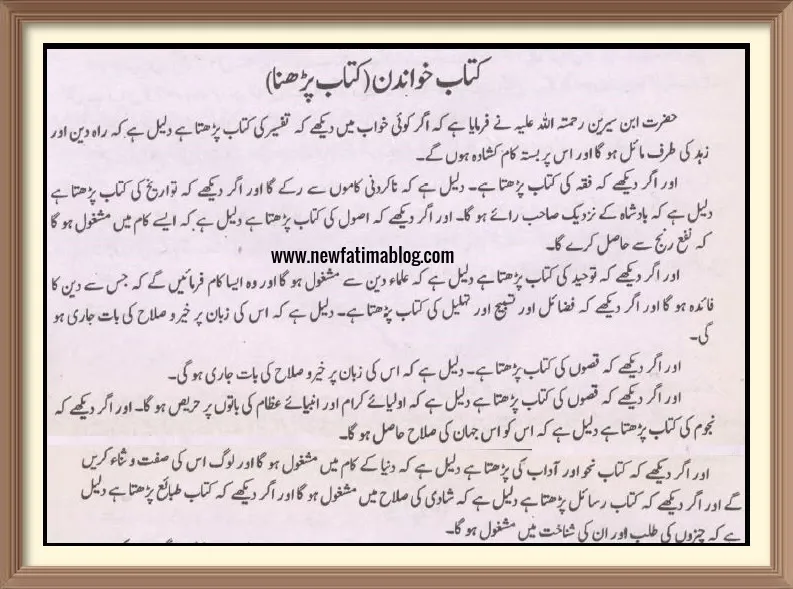 کتاب خواندن (کتاب پڑھنا)
حضرت ابن سیرین رحمتہ اللہ علیہ نے فرمایا ہے کہ اگر کوئی خواب میں دیکھے کہ تفسیر کی کتاب پڑھتا ہے دلیل ہے کہ راہ دین اور
زہد کی طرف مائل ہو گا اور اس پر بستہ کام کشادہ ہوں گے۔
اور اگر دیکھے کہ فقہ کی کتاب پڑھتا ہے۔ دلیل ہے کہ ناکردنی کاموں سے رکے گا اور اگر دیکھے کہ تواریخ کی کتاب پڑھتا ہے
دلیل ہے کہ بادشاہ کے نزدیک صاحب رائے ہو گا۔ اور اگر دیکھے کہ اصول کی کتاب پڑھتا ہے دلیل ہے کہ ایسے کام میں مشغول ہو گا
کہ نفع رنج سے حاصل کرے گا۔
www.newfatimablog.com
اور اگر دیکھے کہ توحید کی کتاب پڑھتا ہے دلیل ہے کہ علماء دین سے مشغول ہو گا اور وہ ایسا کام فرمائیں گے کہ جس سے دین کا
فائدہ ہو گا اور اگر دیکھے کہ فضائل اور تسبیح اور تہلیل کی کتاب پڑھتا ہے۔ دلیل ہے کہ اس کی زبان پر خیر و صلاح کی بات جاری ہو
گی۔
اور اگر دیکھے کہ قصوں کی کتاب پڑھتا ہے۔ دلیل ہے کہ اس کی زبان پر خیر و صلاح کی بات جاری ہو گی۔
اور اگر دیکھے کہ قصوں کی کتاب پڑھتا ہے دلیل ہے کہ اولیائے کرام اور انبیائے عظام کی باتوں پر حریص ہو گا۔ اور اگر دیکھے کہ
نجوم کی کتاب پڑھتا ہے دلیل ہے کہ اس کو اس جہان کی صلاح حاصل ہو گا۔
اور اگر دیکھے کہ کتاب نحو اور آداب کی پڑھتا ہے دلیل ہے کہ دنیا کے کام میں مشغول ہو گا اور لوگ اس کی صفت و ثناء کریں
گے اور اگر دیکھے کہ کتاب رسائل پڑھتا ہے دلیل ہے کہ شادی کی صلاح میں مشغول ہو گا اور اگر دیکھے کہ کتاب طبائع پڑھتا ہے دلیل
ہے کہ چیزوں کی طلب اور ان کی شناخت میں مشغول ہو گا۔